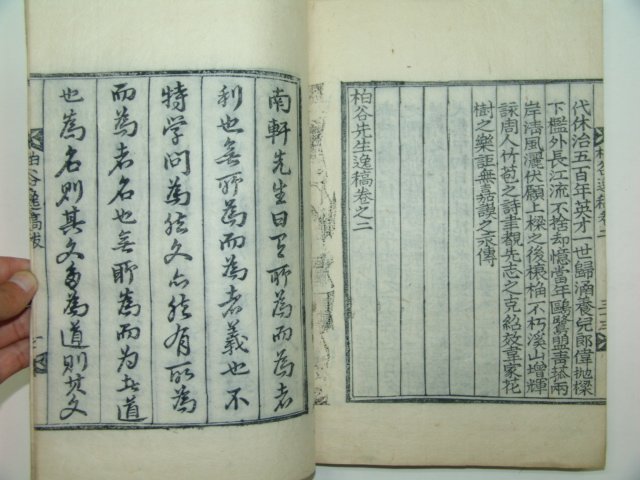 代休治五百年英才一世歸涵養兒郎偉抛樑
下檻外長江流不捨却憶當年鷗鷺盟靑蓑兩
岸濟風灑伏願上樑之後榱桷不朽溪山增輝
詠周人竹苞之詩聿覩先志之克紹放韋家花
樹之樂詎無嘉謨之永傳
柏谷先生逸稿卷之二
柏谷逸稿 卷二
三十三
南軒先生曰有所爲而爲者
利也無所爲而爲者義也不
特学问爲然文亦然有所爲
而爲者名也無所爲而为者道
也爲名則其文多爲道則其文
柏谷逸稿跋